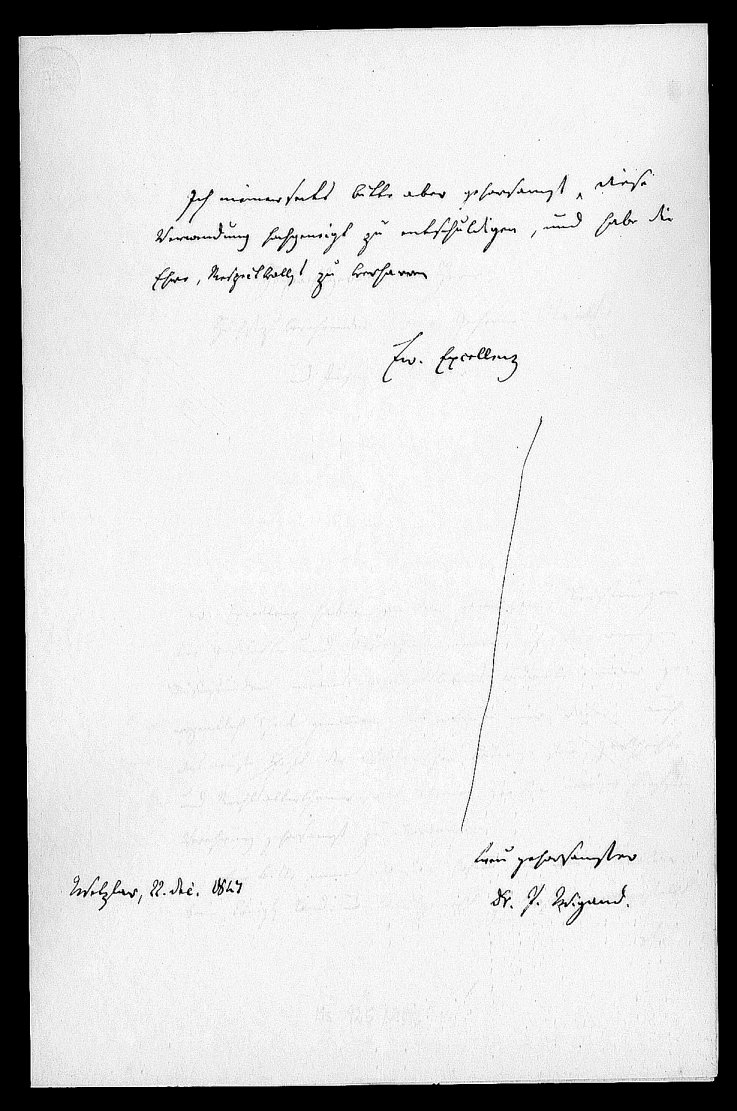 Ich meinerseits bitte aber gehorsamst, diese
Verwendung hochgeneigt zu entschuldigen, und habe die
Ehre, Respektvollst zu verharren
Ew. Excellenz
treu gehorsamster
Wetzlar, 22. Dec. 1847
Dr. P. Wigand.